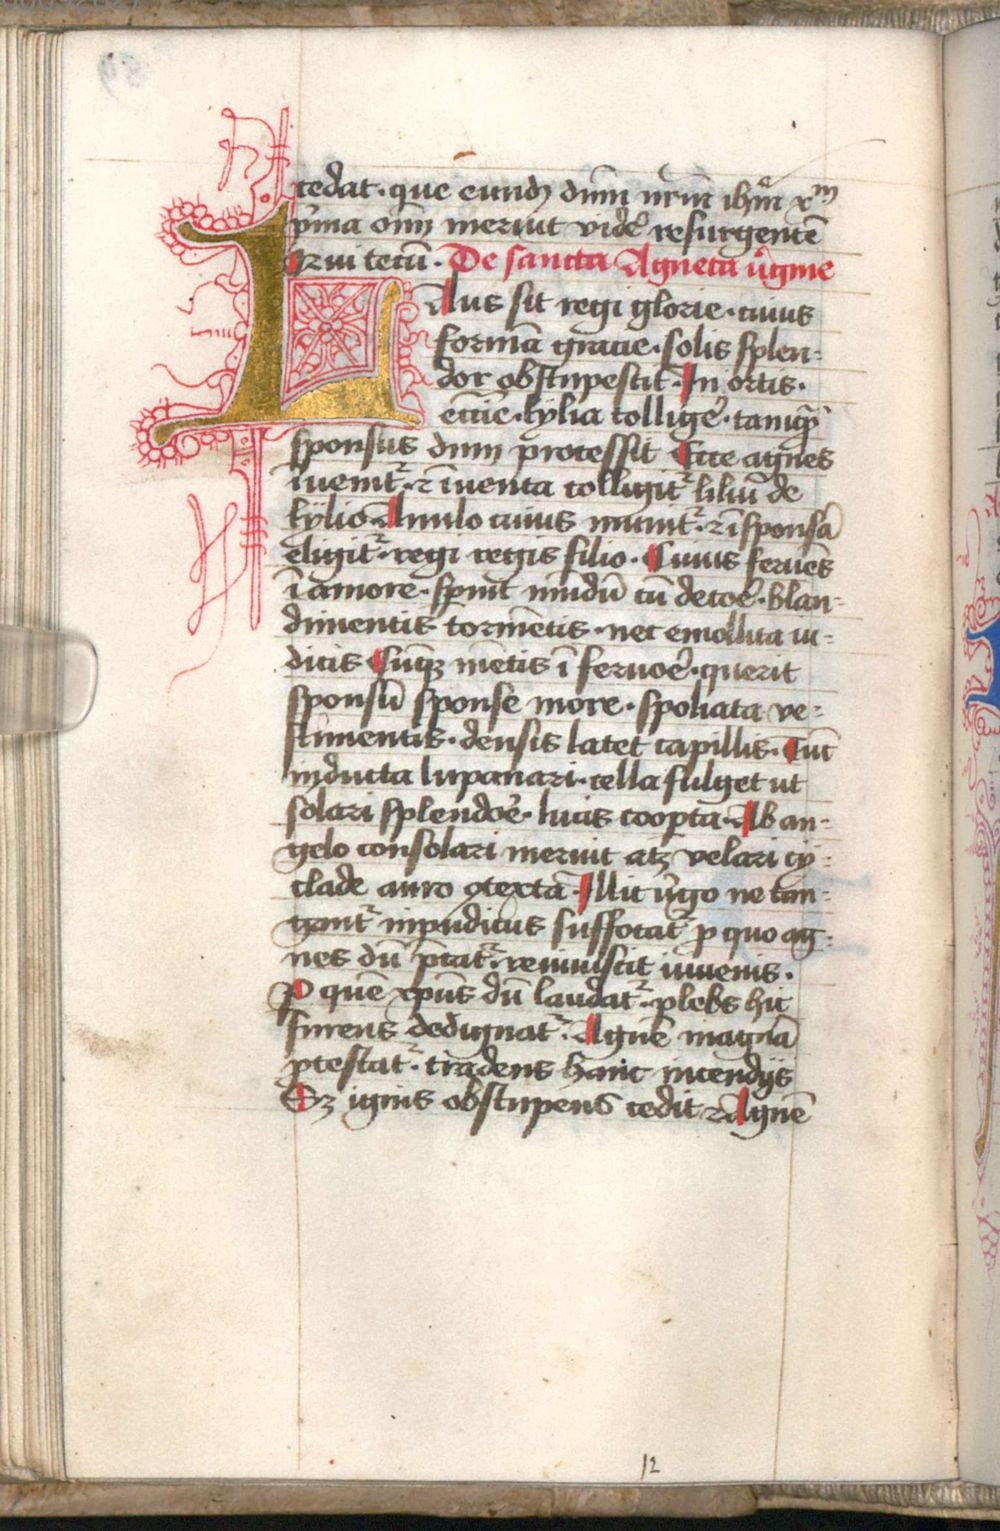 cedat · que eundȝ dnm̄ nr̄m ihm̄ xm
pͥma oīm meruit videˀ resurgentē
Qui tecū · De sancta Agneta vͥgine
LAus sit regi glorie · cuius
formā gracie · solis splen-
dor obstupescit · In ortis ·
eccīe · lylia colligeˀ · tamqͣ
sponsus dum processit Ecce agnes
īuenitᷣ · ⁊ īuenta colligitᷣ liliū de
lylio · Anulo cuius munitᷣ · ⁊ ī sponsā
eligitᷣ · regi regis filio · Cuius feruēs
ī amore · spͥnit mūdū cū decoeˀ · blan-
dimentis tormētis · nec emollita iu-
dicis Cūqȝ mētis ī feruoeˀ · querit
sponsū sponse more · spoliata ve-
stimentis · densis latet capillis · Tūc
inducta lupanari · cella fulget ut
solari splendoeˀ · lucis coopta · Ab an-
gelo consolari meruit atqȝ velari cy-
clade auro ꝯtexta · Illic vͥgo ne tan-
gantᷣ inpudicus suffocatᷣ p quo ag-
nes dū pͥcatᷣ · reuiuiscit iuuenis ·
P quē xpūs dū laudatᷣ · plebs hic
furens dedignatᷣ · Agnē magicā
ꝓtestatᷣ · tradens hanc incendijs
Sȝ ignis obstupens cedit ⁊ Agnē
12